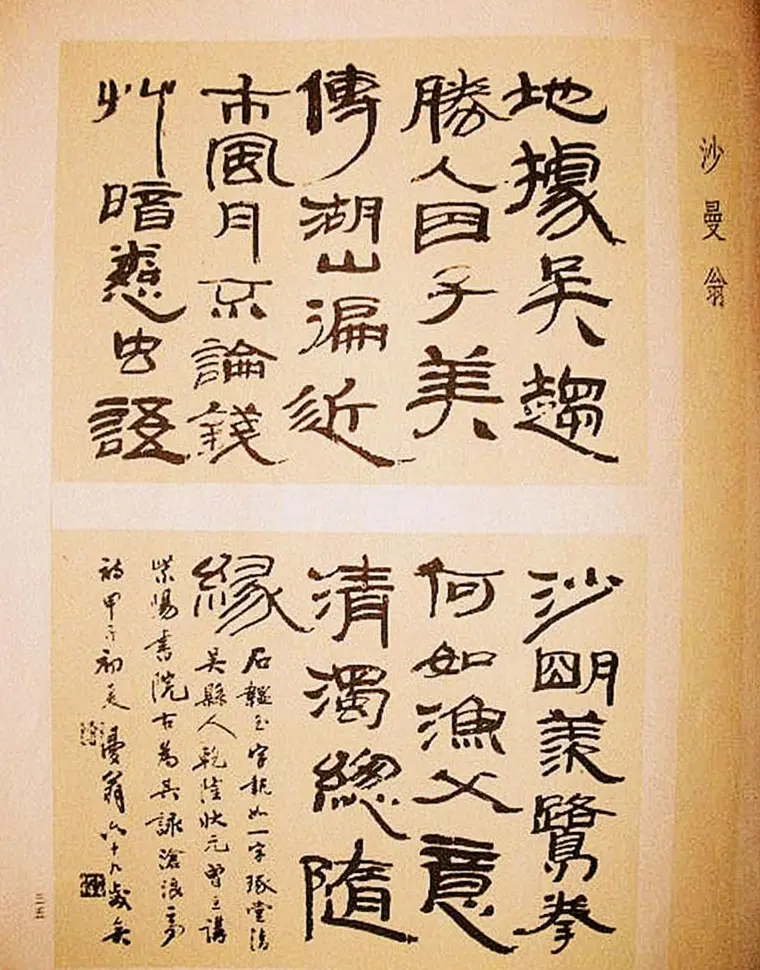 沙曼翁
地據吳趨
勝人因子美
傳湖山偏近
市風月不論錢
艸暗愁虫語
沙朙羨鷺拳
何如漁父意
清濁總隨
緣
石韞玉字執如一字琢堂清
吳縣人乾隆狀元曾主講
紫陽書院右為其詠滄浪亭
詩甲子初夏曼翁六十九歲
三五